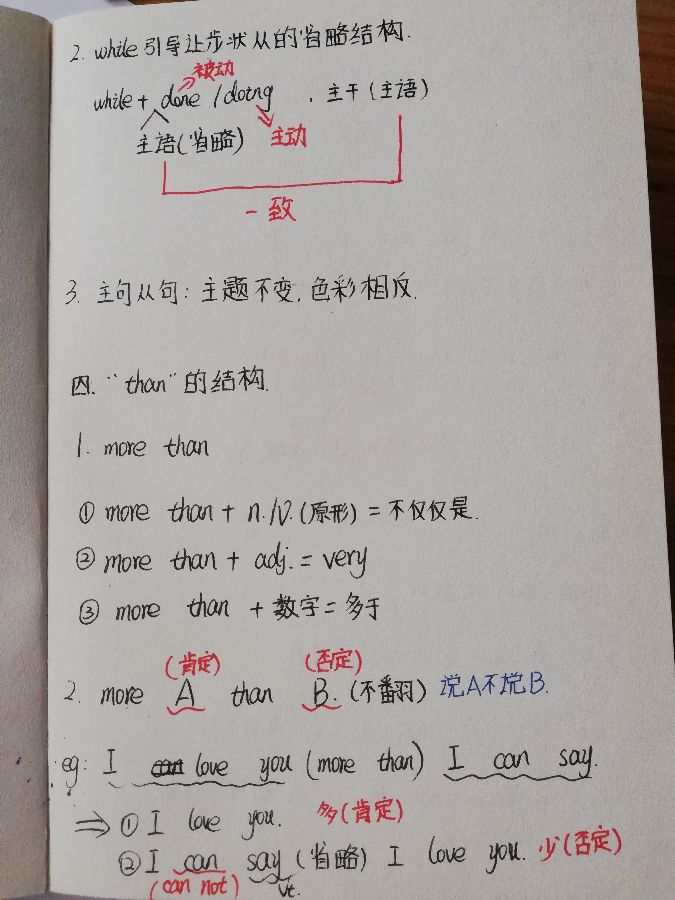 2. while引导让步状从的省略结构.
被动
while + done / doing , 主干(主语)
主语(省略) 主动
一致
3. 主句从句: 主题不变, 色彩相反.
四. "than"的结构.
1. more than
① more than + n./v.(原形) = 不仅仅是.
② more than + adj. = very
③ more than + 数字 = 多于
(肯定) (否定)
2. more A than B. (不翻) 说A不说B.
eg: I can love you (more than) I can say.
⇒ ① I love you. 多(肯定)
② I can say (省略) I love you. 少(否定)
(can not) vt.